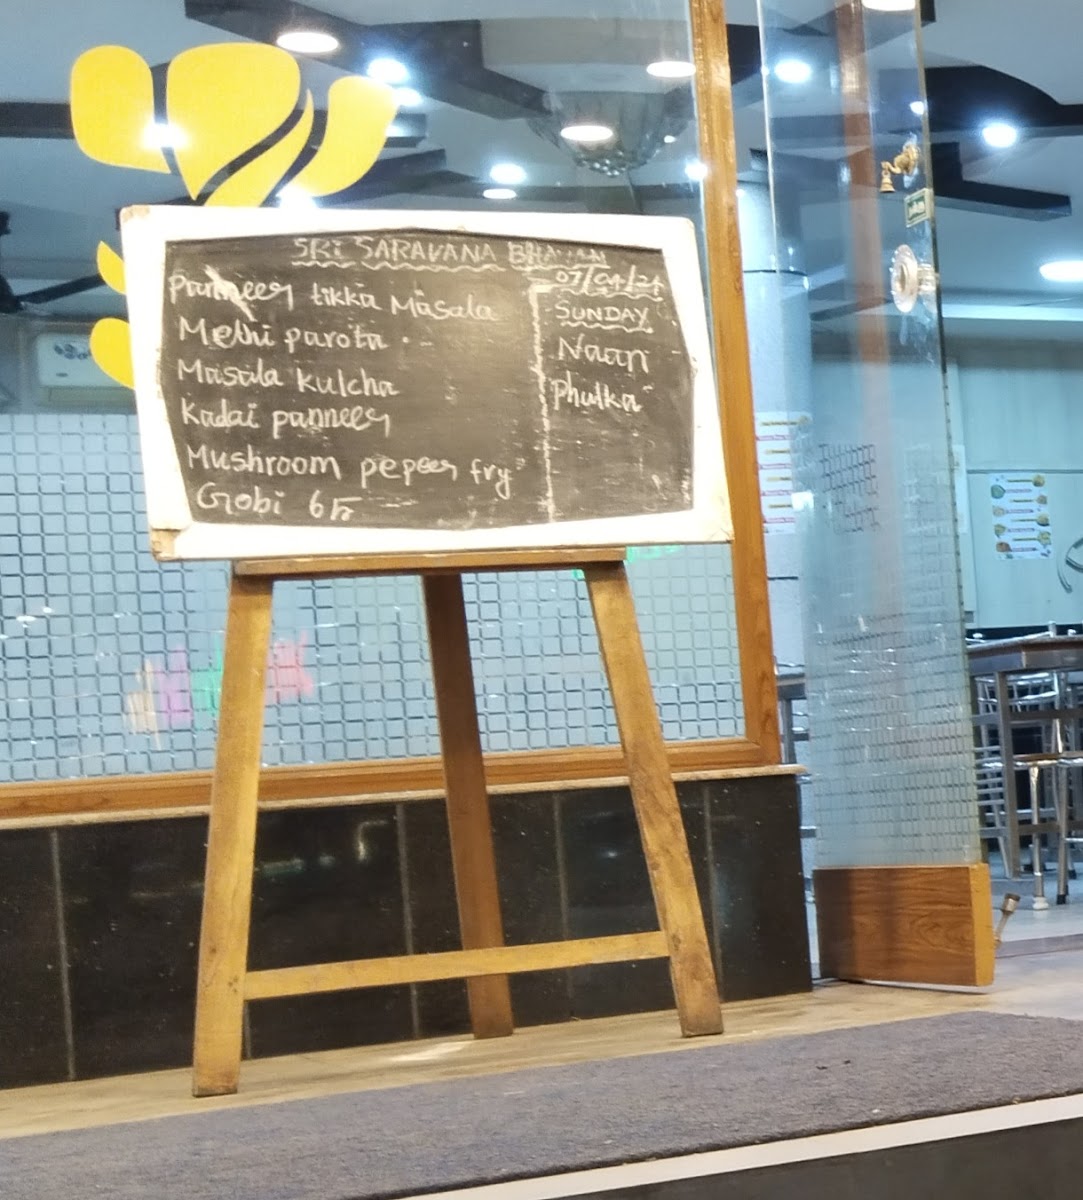 SRI SARAVANA BHAVAN
07/04/24
SUNDAY
Panneer tikka Masala
Methi parota
Masala kulcha
Kadai panneer
Mushroom pepeer fry
Gobi 65
Naan
Phulka